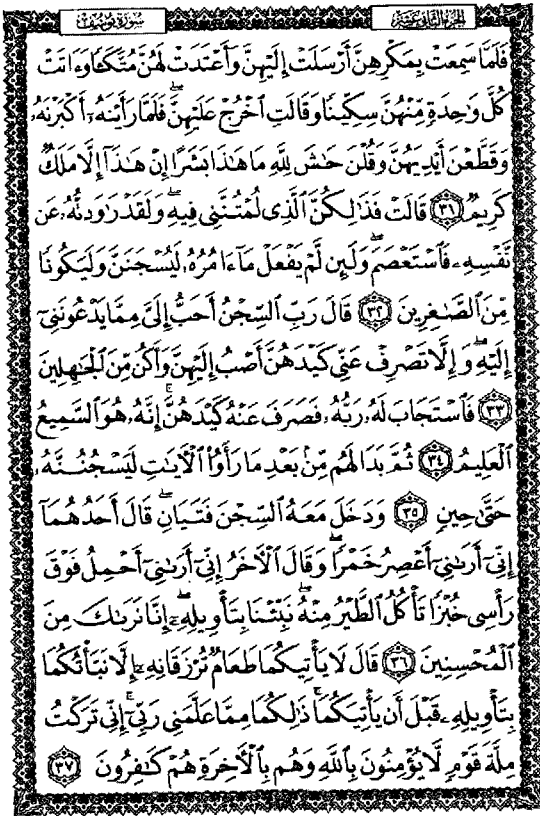 الجزء الثاني عشر
سورة يوسف
فَلَمَّا سَمِعَتْ بِمَكْرِهِنَّ أَرْسَلَتْ إِلَيْهِنَّ وَأَعْتَدَتْ لَهُنَّ مُتَّكَـًٔا وَءَاتَتْ
كُلَّ وَٰحِدَةٍ مِّنْهُنَّ سِكِّينًا وَقَالَتِ ٱخْرُجْ عَلَيْهِنَّ ۖ فَلَمَّا رَأَيْنَهُۥٓ أَكْبَرْنَهُۥ
وَقَطَّعْنَ أَيْدِيَهُنَّ وَقُلْنَ حَٰشَ لِلَّهِ مَا هَٰذَا بَشَرًا إِنْ هَٰذَآ إِلَّا مَلَكٌ
كَرِيمٌ ٣١ قَالَتْ فَذَٰلِكُنَّ ٱلَّذِى لُمْتُنَّنِى فِيهِ ۖ وَلَقَدْ رَٰوَدتُّهُۥ عَن
نَّفْسِهِۦ فَٱسْتَعْصَمَ ۖ وَلَئِن لَّمْ يَفْعَلْ مَآ ءَامُرُهُۥ لَيُسْجَنَنَّ وَلَيَكُونًا
مِّنَ ٱلصَّٰغِرِينَ ٣٢ قَالَ رَبِّ ٱلسِّجْنُ أَحَبُّ إِلَىَّ مِمَّا يَدْعُونَنِىٓ
إِلَيْهِ ۖ وَإِلَّا تَصْرِفْ عَنِّى كَيْدَهُنَّ أَصْبُ إِلَيْهِنَّ وَأَكُن مِّنَ ٱلْجَٰهِلِينَ
٣٣ فَٱسْتَجَابَ لَهُۥ رَبُّهُۥ فَصَرَفَ عَنْهُ كَيْدَهُنَّ ۚ إِنَّهُۥ هُوَ ٱلسَّمِيعُ
ٱلْعَلِيمُ ٣٤ ثُمَّ بَدَا لَهُم مِّنۢ بَعْدِ مَا رَأَوُا۟ ٱلْءَايَٰتِ لَيَسْجُنُنَّهُۥ
حَتَّىٰ حِينٍ ٣٥ وَدَخَلَ مَعَهُ ٱلسِّجْنَ فَتَيَانِ ۖ قَالَ أَحَدُهُمَآ
إِنِّىٓ أَرَىٰنِىٓ أَعْصِرُ خَمْرًا ۖ وَقَالَ ٱلْءَاخَرُ إِنِّىٓ أَرَىٰنِىٓ أَحْمِلُ فَوْقَ
رَأْسِى خُبْزًا تَأْكُلُ ٱلطَّيْرُ مِنْهُ ۖ نَبِّئْنَا بِتَأْوِيلِهِۦٓ ۖ إِنَّا نَرَىٰكَ مِنَ
ٱلْمُحْسِنِينَ ٣٦ قَالَ لَا يَأْتِيكُمَا طَعَامٌ تُرْزَقَانِهِۦٓ إِلَّا نَبَّأْتُكُمَا
بِتَأْوِيلِهِۦ قَبْلَ أَن يَأْتِيَكُمَا ۚ ذَٰلِكُمَا مِمَّا عَلَّمَنِى رَبِّىٓ ۚ إِنِّى تَرَكْتُ
مِلَّةَ قَوْمٍ لَّا يُؤْمِنُونَ بِٱللَّهِ وَهُم بِٱلْءَاخِرَةِ هُمْ كَٰفِرُونَ ٣٧